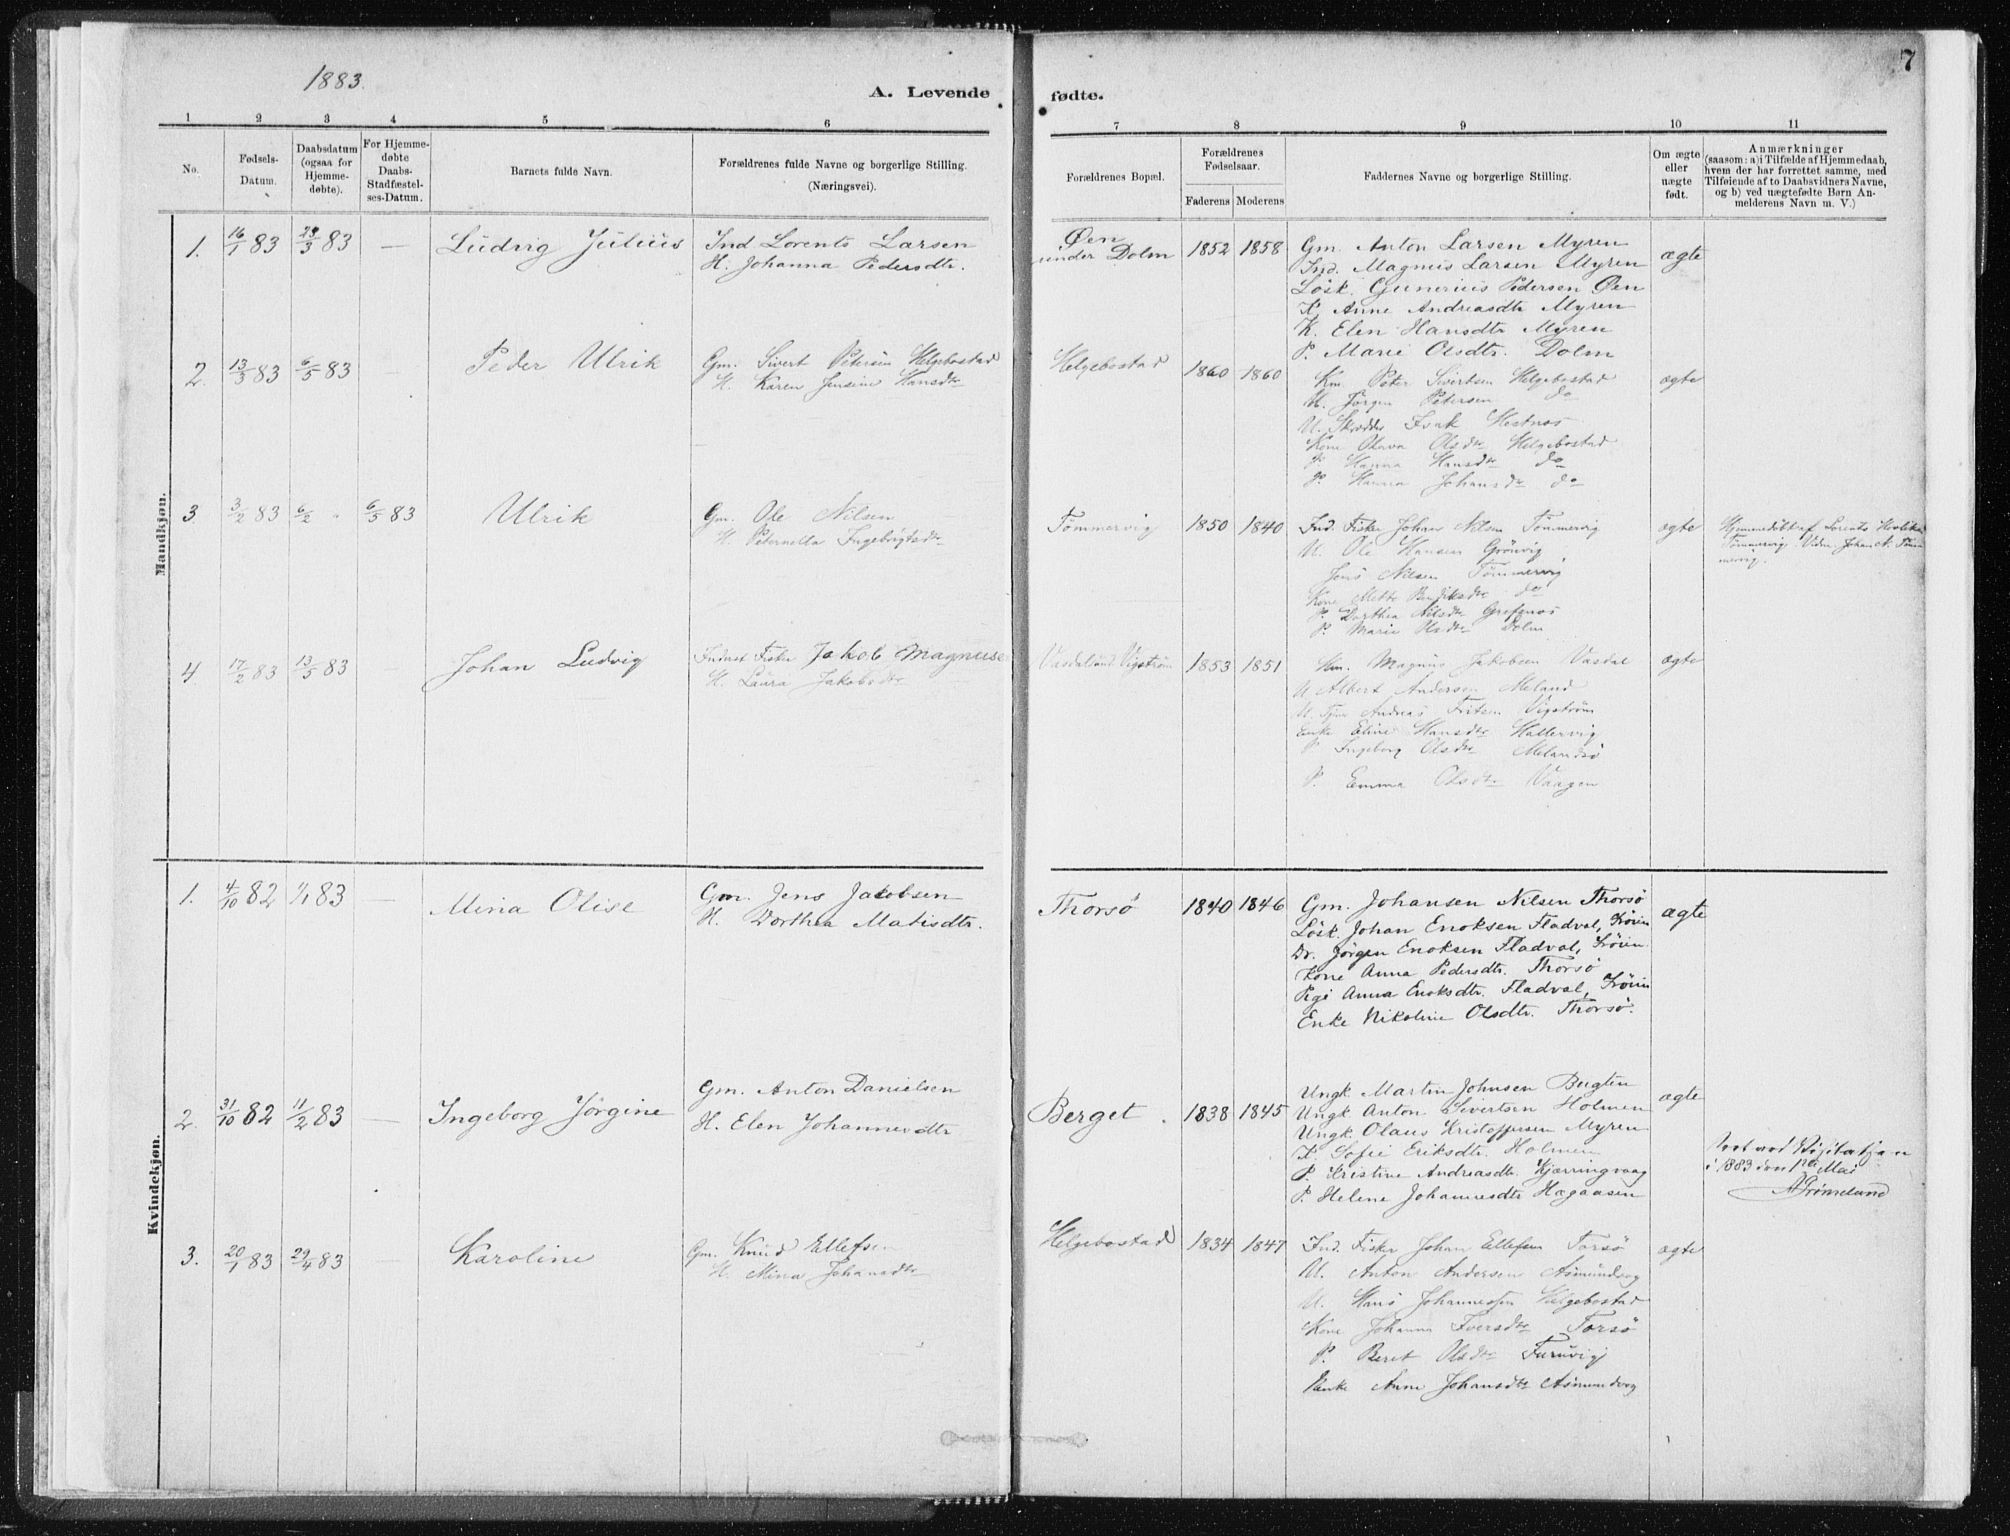 1883.
7
A. Levende fødte.
1 2 3 4 5 6 7 8 9 10 11
No.
Fødsels-Datum.
Daabsdatum (ogsaa for Hjemme-døbte).
For Hjemme-døbte Daabs-Stadfæstel-ses-Datum.
Barnets fulde Navn.
Forældrenes fulde Navne og borgerlige Stilling. (Næringsvei).
Forældrenes Bopæl.
Forældrenes Fødselsaar.
Faderens Moderens
Faddernes Navne og borgerlige Stilling.
Om ægte eller uægte født.
Anmærkninger (saasom: a) i Tilfælde af Hjemmedaab, hvem der har forrettet samme, med Tilføiende af to Daabsvidners Navne, og b) ved uægtefødte Børn An-melderens Navn m. V.)
Mandkjøn.
1. 16/1 83 29/3 83 — Ludvig Julius
Ind Lorents Larsen
H. Johanna Pedersdtr.
Øen under Dolm 1852 1858
Gm. Anton Larsen Myren
Ind. Magnus Larsen Myren
Løsk. Gunerius Pedersen Øen
K. Anne Andreasdtr Myren
K. Elen Hansdtr Myren
P. Marie Olsdtr. Dolm
ægte
2. 13/3 83 6/5 83 — Peder Ulrik
Gm. Sivert Petersen Helgebostad
H. Karen Jensine Hansdtr
Helgebostad 1860 1860
Km. Peter Sivertsen Helgebostad
U. Jørgen Petersen do
U. Skrædder Isak Hestnes
Kone Olava Olsdtr Helgebostad
P. Hanna Hansdtr do
P. Hanna Johansdtr do
ægte
3 3/2 83 6/2 " 6/5 83 Ulrik
Gm. Ole Nilsen
H. Peternella Ingebrigtsdtr
Tømmervig 1850 1840
Ind. Fisker Johan Nilsen Tømmervig
U. Ole Hansen Grønvig
Jens Nilsen Tømmervig
Kone Mette Bendiksdtr do
P. Dorthea Nilsdtr Grefsnes
P. Marie Olsdtr Dolm
ægte
Hjemmedøbt af Lorents
Tømmervig. Vidn. Johan N. Tøm
mervig.
4 17/2 83 13/5 83 — Johan Ludvig
Inderst Fisker Jakob Magnuse
H. Laura Jakobsdtr
Vasdal und. Vigstrøm 1853 1851
Km. Magnus Jakobsen Vasdal
U Albert Andersen Meland
U. Andreas Fritsen Vigstrøm
Enke Eline Hansdtr Hallervig
P Ingeborg Olsdtr Melandsø
P. Emma Olsdtr Vaagen
ægte
Kvindekjøn.
1. 4/10 82 1/1 83 — Mina Olise
Gm. Jens Jacobsen
H. Dorthea Matisdtr.
Thorsø 1840 1846
Gm. Johansen Nilsen Thorsø
Løsk. Johan Enoksen Fladval, Frøien
Dr. Jørgen Enoksen Fladval, Frøien
Kone Anna Pedersdtr. Thorsø
Pige Anna Enoksdtr. Fladval, Frøien
Enke Nikoline Olsdtr. Thorsø.
ægte
2. 31/10 82 11/2 83 — Ingeborg Jørgine
Gm. Anton Danielsen
H. Elen Johannesdtr
Berget. 1838 1845
Ungk. Martin Johnsen Bugten
Ungk Anton Sivertsen Holmen
Ungk. Olaus Kristoffersen Myren
K. Sofie Eriksdtr. Holmen
P. Kristine Andreasdtr Kjærringvaag
P. Helene Johannesdtr Hagaasen
ægte
ved Visitatsen
i 1883 den 1ste Mai
AGrønelund
3. 20/1 83 29/4 83 — Karoline
Gm. Knud Ellefsen
H. Mina Johansdtr
Helgebostad 1834 1847
Ind. Fisker Johan Ellefsen Torsø
U. Anton Andersen Asmundvag
U. Hans Johannessen Helgebostad
Kone Johanna Iversdtr Torsø
P. Beret Olsdtr Furuvig
Enke Anne Johansdtr Asmundvag
ægte